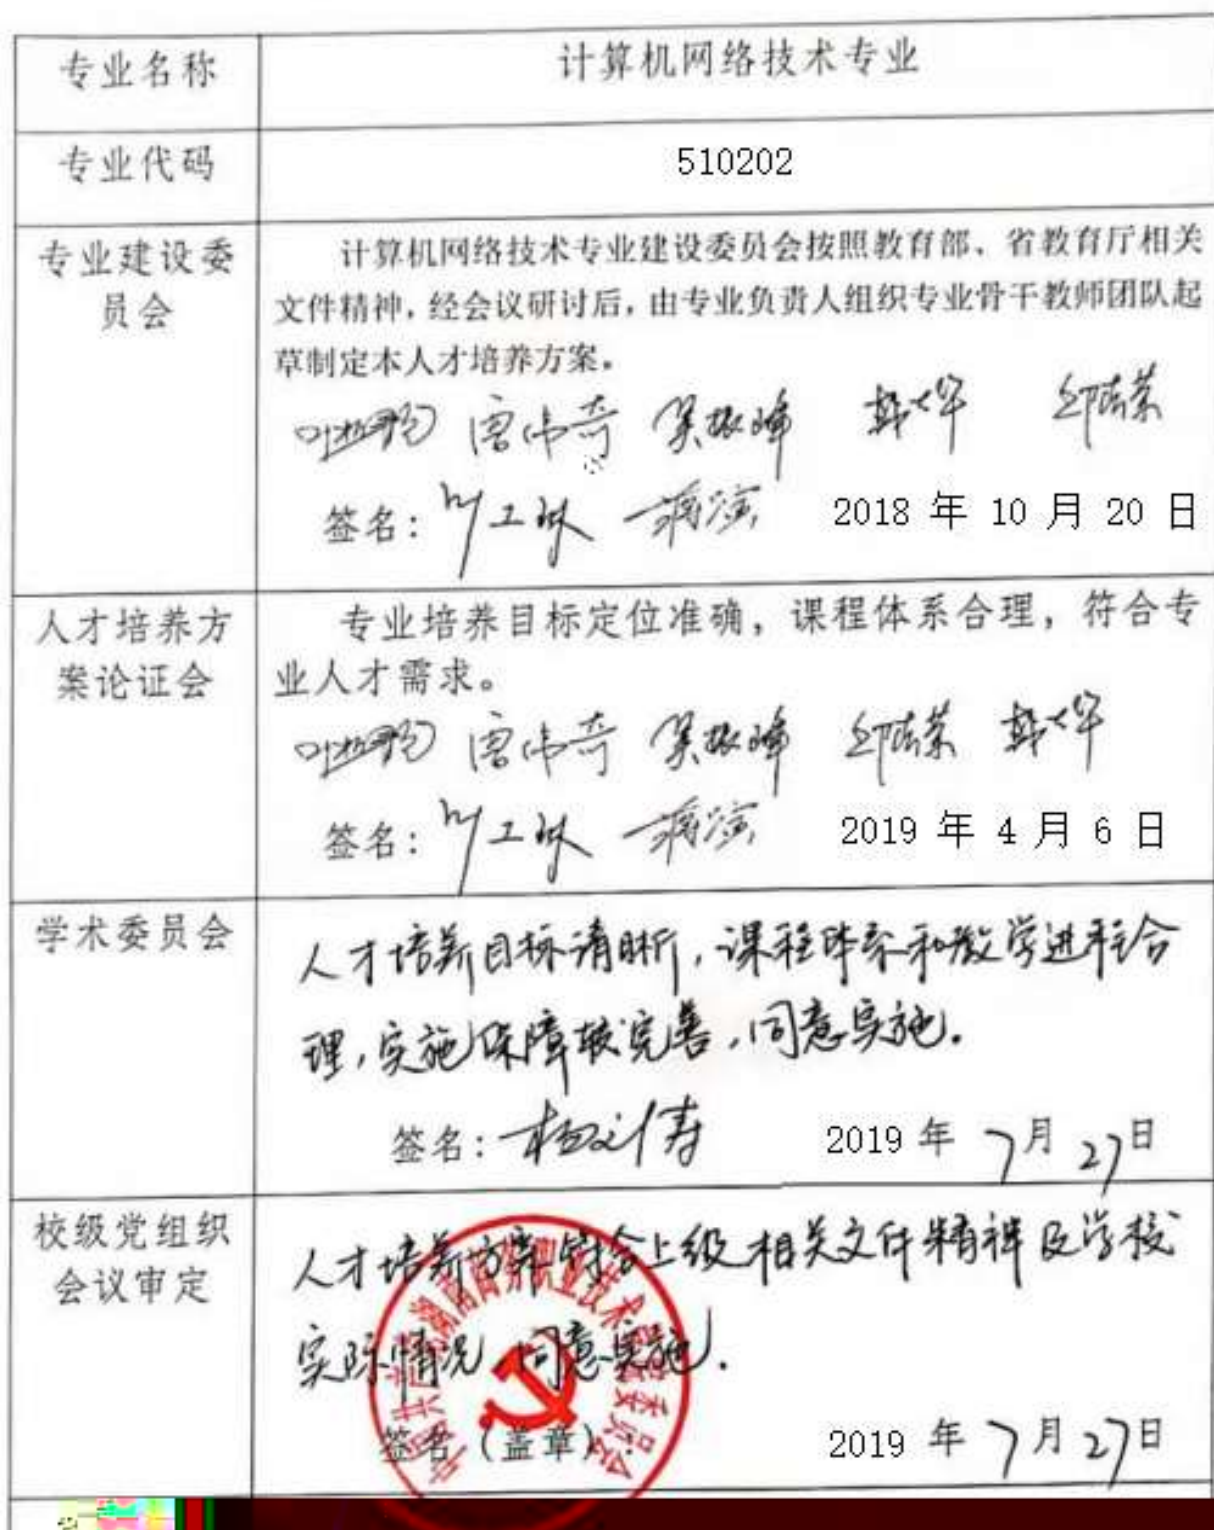 专业名称
计算机网络技术专业
专业代码
510202
专业建设委
员会
计算机网络技术专业建设委员会按照教育部、省教育厅相关
文件精神，经会议研讨后，由专业负责人组织专业骨干教师团队起
草制定本人才培养方案。
唐伟奇 吴振峰
签名： 2018 年 10 月 20 日
人才培养方
案论证会
专业培养目标定位准确，课程体系合理，符合专
业人才需求。
唐伟奇 吴振峰
签名： 2019 年 4 月 6 日
学术委员会
人才培养目标清晰，课程体系和教学进程合
理，实施保障较完善，同意实施。
签名： 2019 年 7月 27日
校级党组织
会议审定
人才培养方案符合上级相关文件精神及学校
实际情况，同意实施。
签名（盖章）：
2019 年 7月 27日